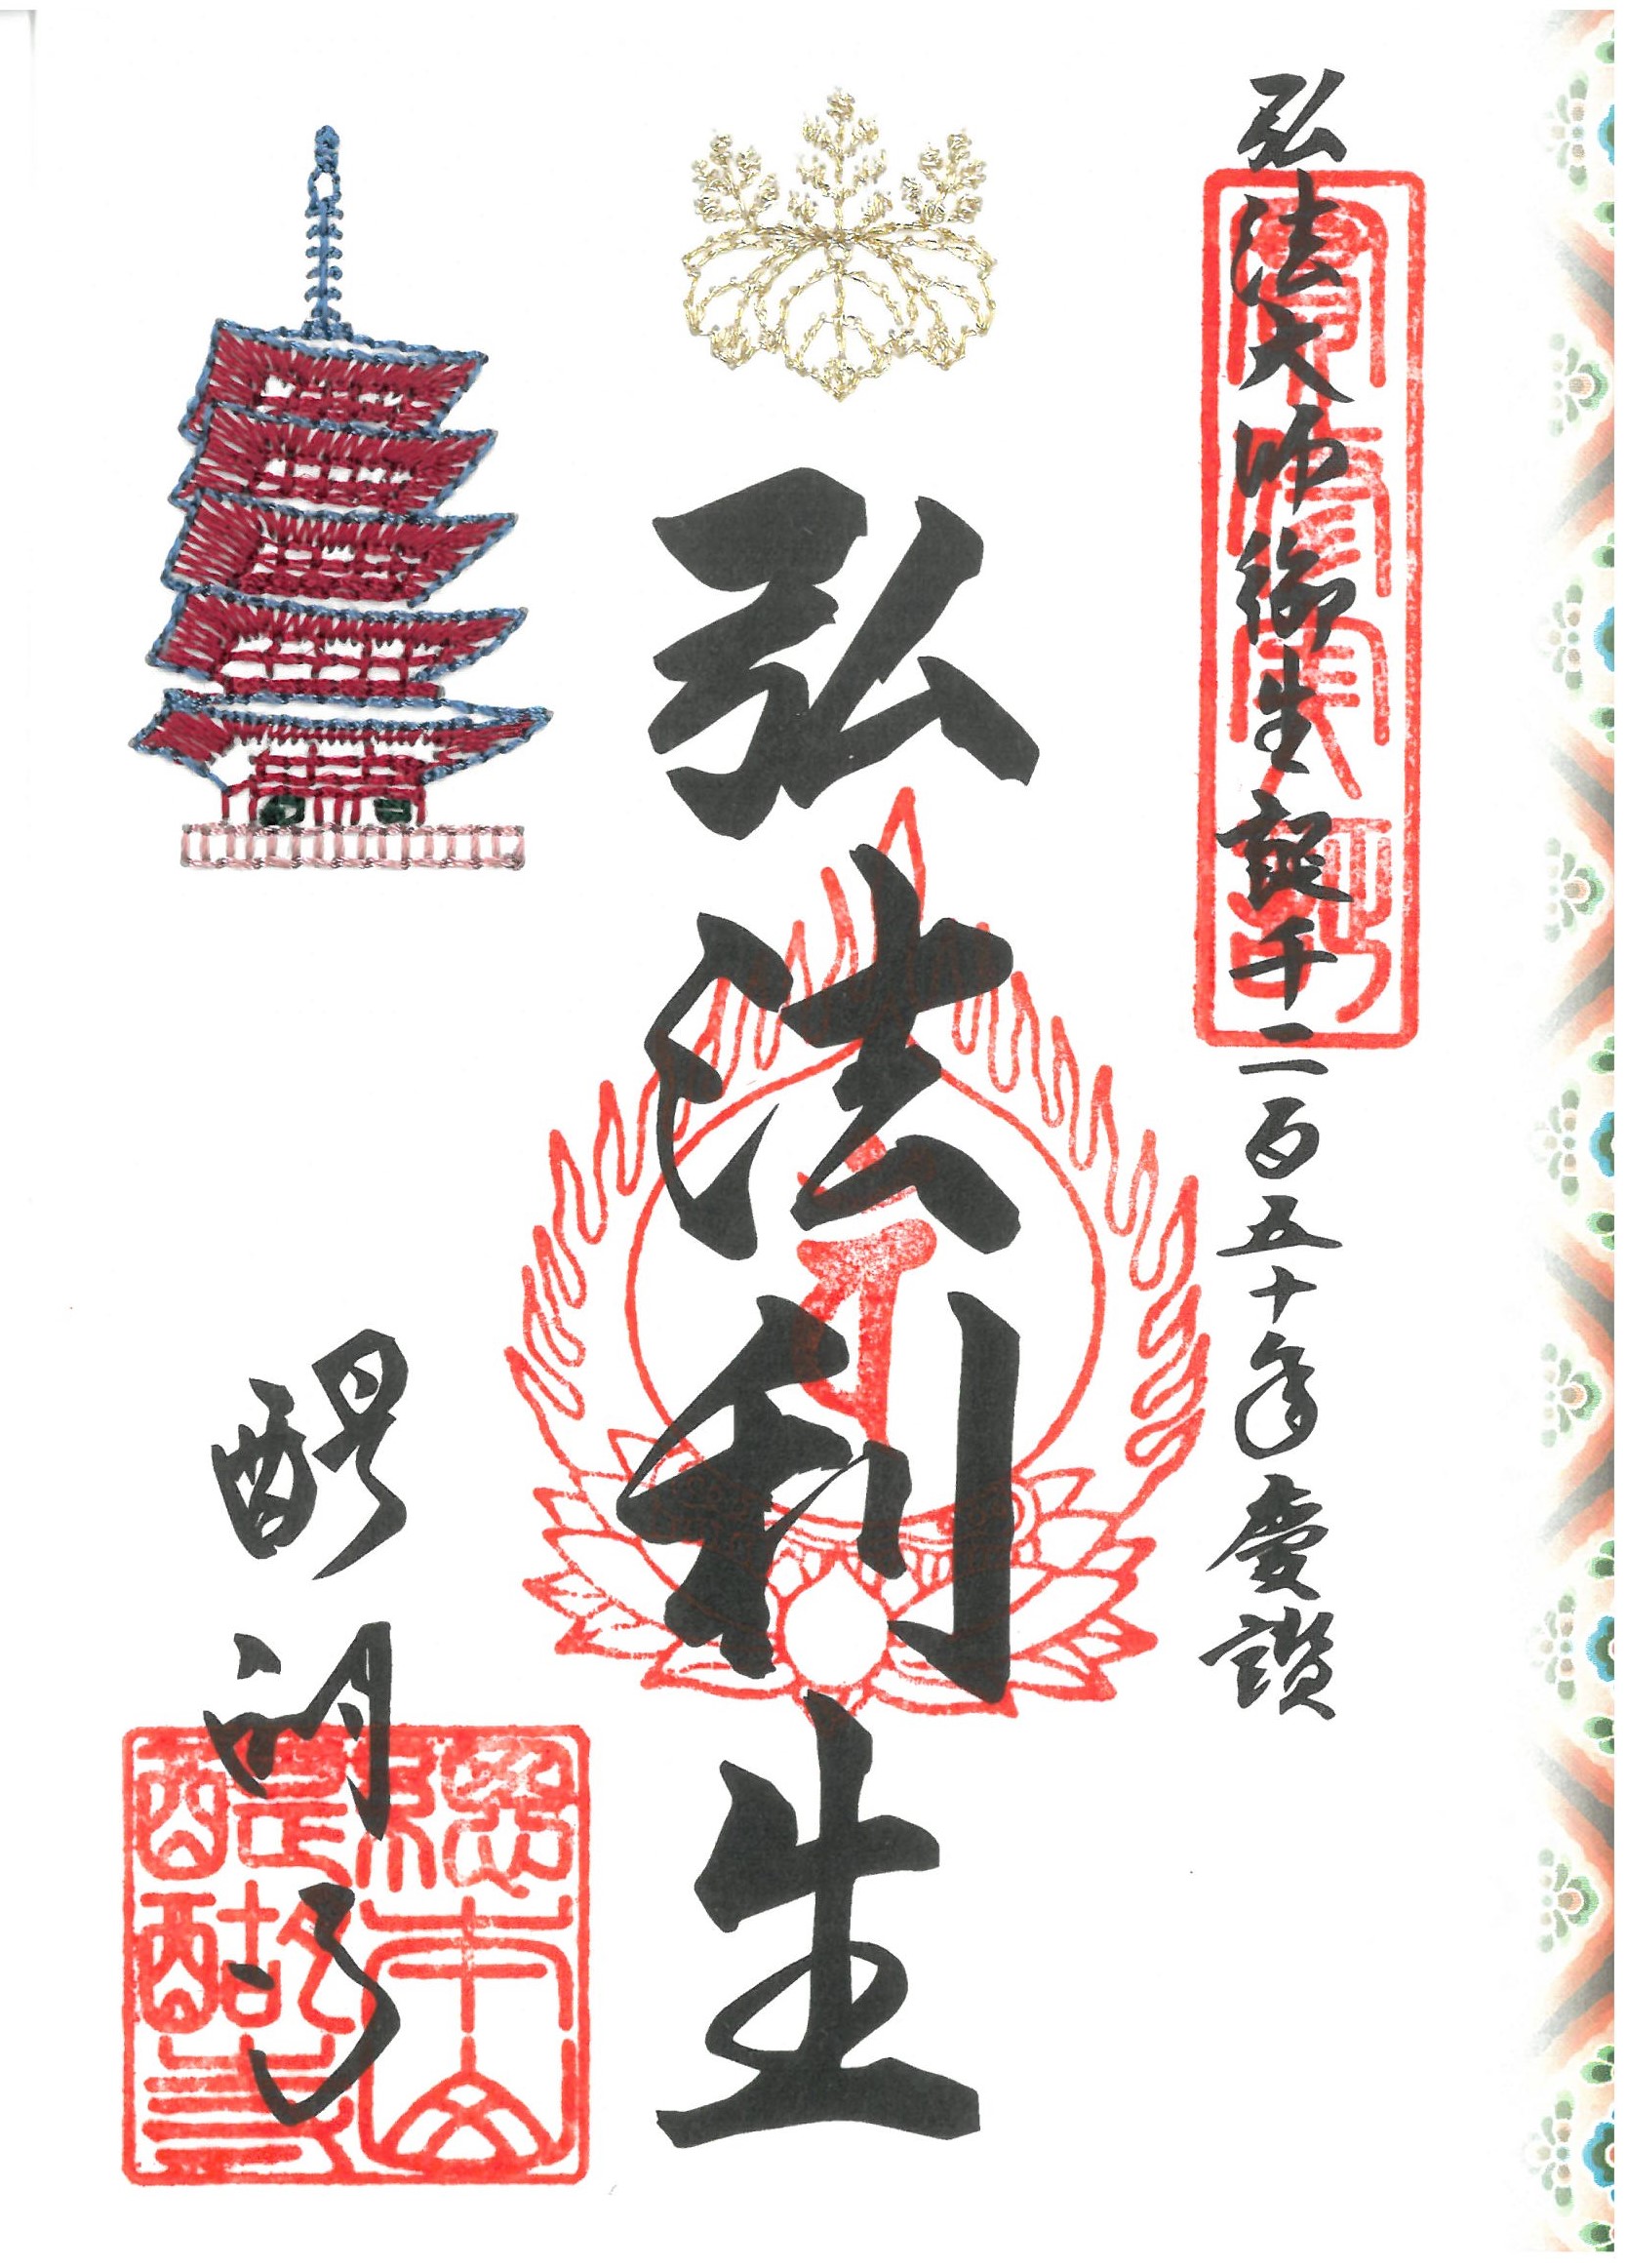 弘法大師御生誕千二百五十年慶讃
弘法利生
醍醐寺
總本山
醍醐寺